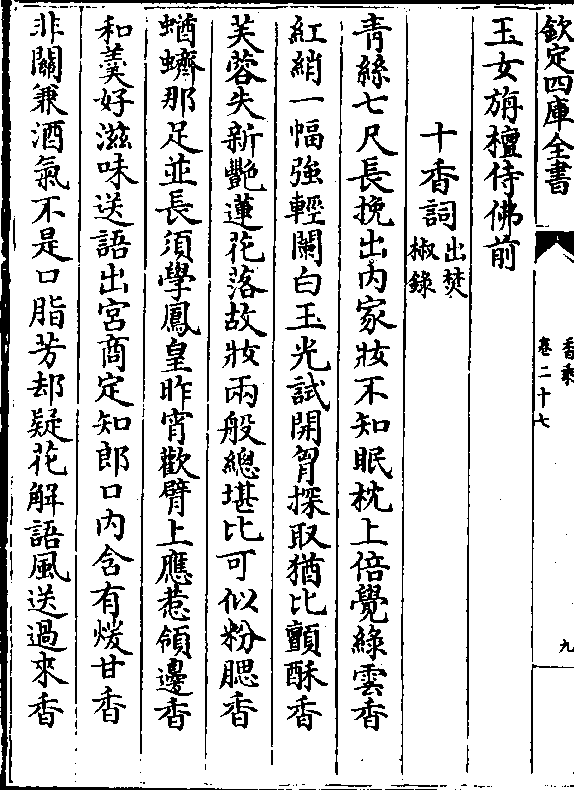 欽定四庫全書
香乘
卷二十七
九
玉女旃檀侍佛前
十香詞出焚椒錄
青絲七尺長挽出內家妝不知眠枕上倍覺綠雲香
紅綃一幅強輕闌白玉光試開胷探取猶比顫酥香
芙蓉失新艷蓮花落故妝兩般總堪比可似粉腮香
蝤蠐那足並長須學鳳皇昨宵歡臂上應惹領邊香
和羹好滋味送語出宮商定知郎口內含有煖甘香
非關兼酒氣不是口脂芳却疑花解語風送過來香